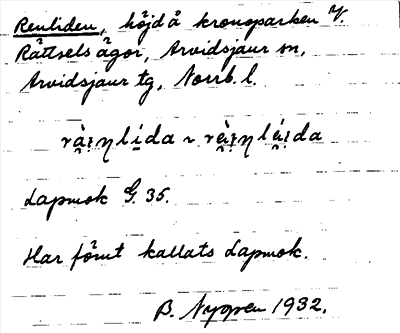 Renliden, höjd å kronoparken V.
Rättsels ägor, Arvidsjaur sn,
Arvidsjaur tg, Norrb. l.
rà̯i̯ŋli̱da ~ rè̯i̯ŋlé̯i̯da
Lapmok G. 35.
Har förut kallats Lapmok.
B. Nygren 1932.